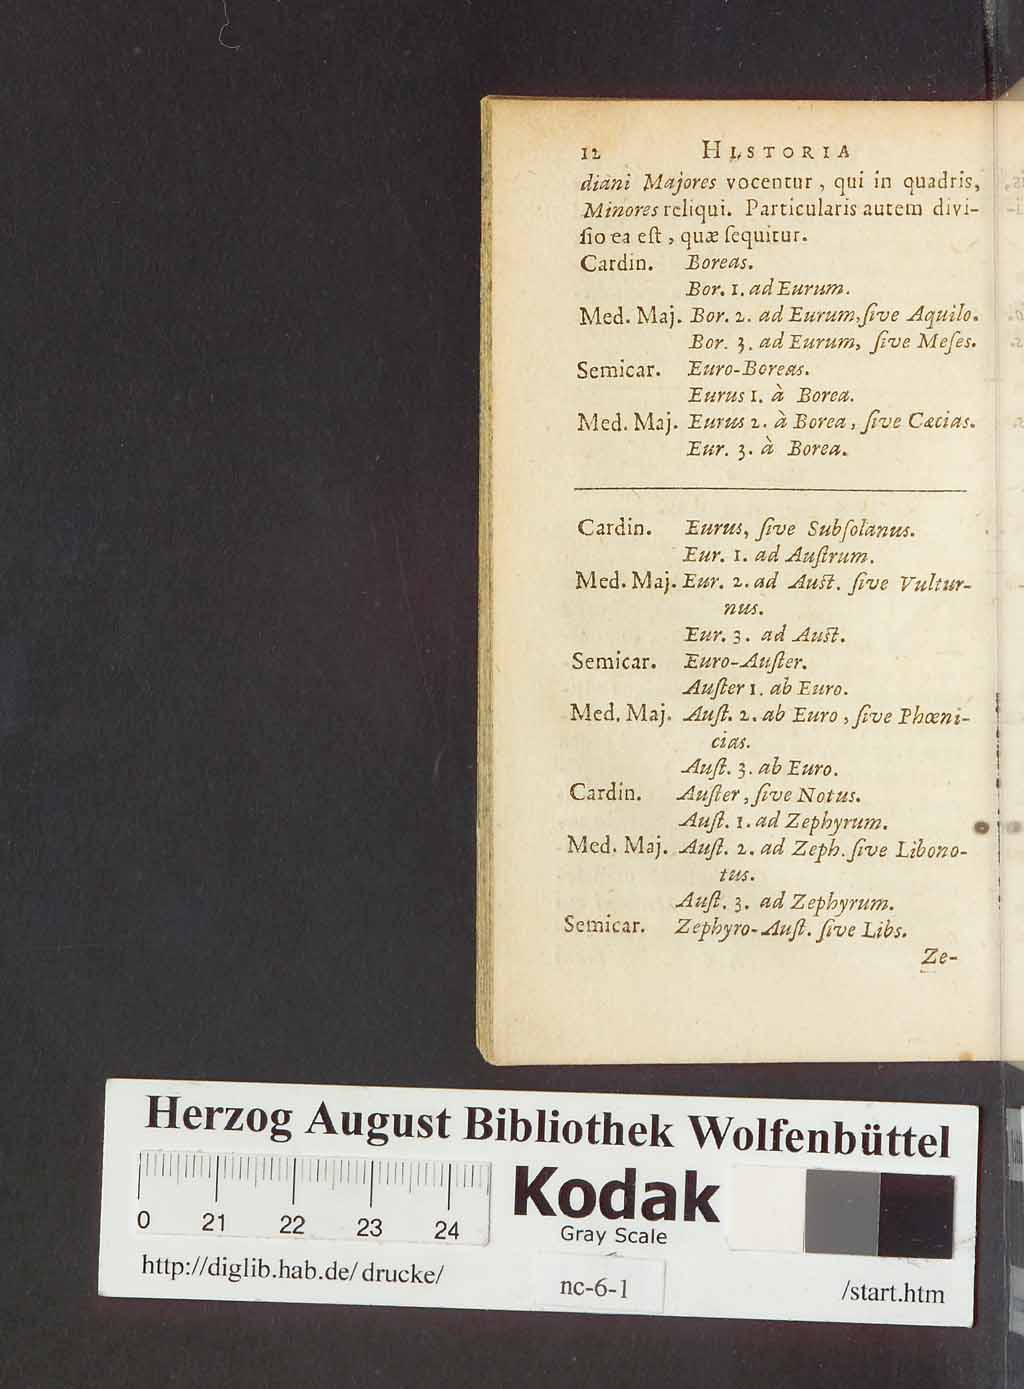 12 HISTORIA
diani Majores vocentur, qui in quadris,
Minores reliqui. Particularis autem divi-
ſio ea eſt, quæ ſequitur.
Cardin. Boreas.
Bor. 1. ad Eurum.
Med. Maj. Bor. 2. ad Eurum, ſive Aquilo.
Bor. 3. ad Eurum, ſive Meſes.
Semicar. Euro-Boreas.
Eurus 1. à Borea.
Med. Maj. Eurus 2. à Borea, ſive Cæcias.
Eur. 3. à Borea.
Cardin. Eurus, ſive Subſolanus.
Eur. 1. ad Auſtrum.
Med. Maj. Eur. 2. ad Auſt. ſive Vultur-
nus.
Eur. 3. ad Auſt.
Semicar. Euro-Auſter.
Auſter 1. ab Euro.
Med. Maj. Auſt. 2. ab Euro, ſive Phœni-
cias.
Auſt. 3. ab Euro.
Cardin. Auſter, ſive Notus.
Auſt. 1. ad Zephyrum.
Med. Maj. Auſt. 2. ad Zeph. ſive Libono-
tus.
Auſt. 3. ad Zephyrum.
Semicar. Zephyro-Auſt. ſive Libs.
Ze-
Herzog August Bibliothek Wolfenbüttel
0 21 22 23 24
Kodak
Gray Scale
http://diglib.hab.de/drucke/ nc-6-1 /start.htm